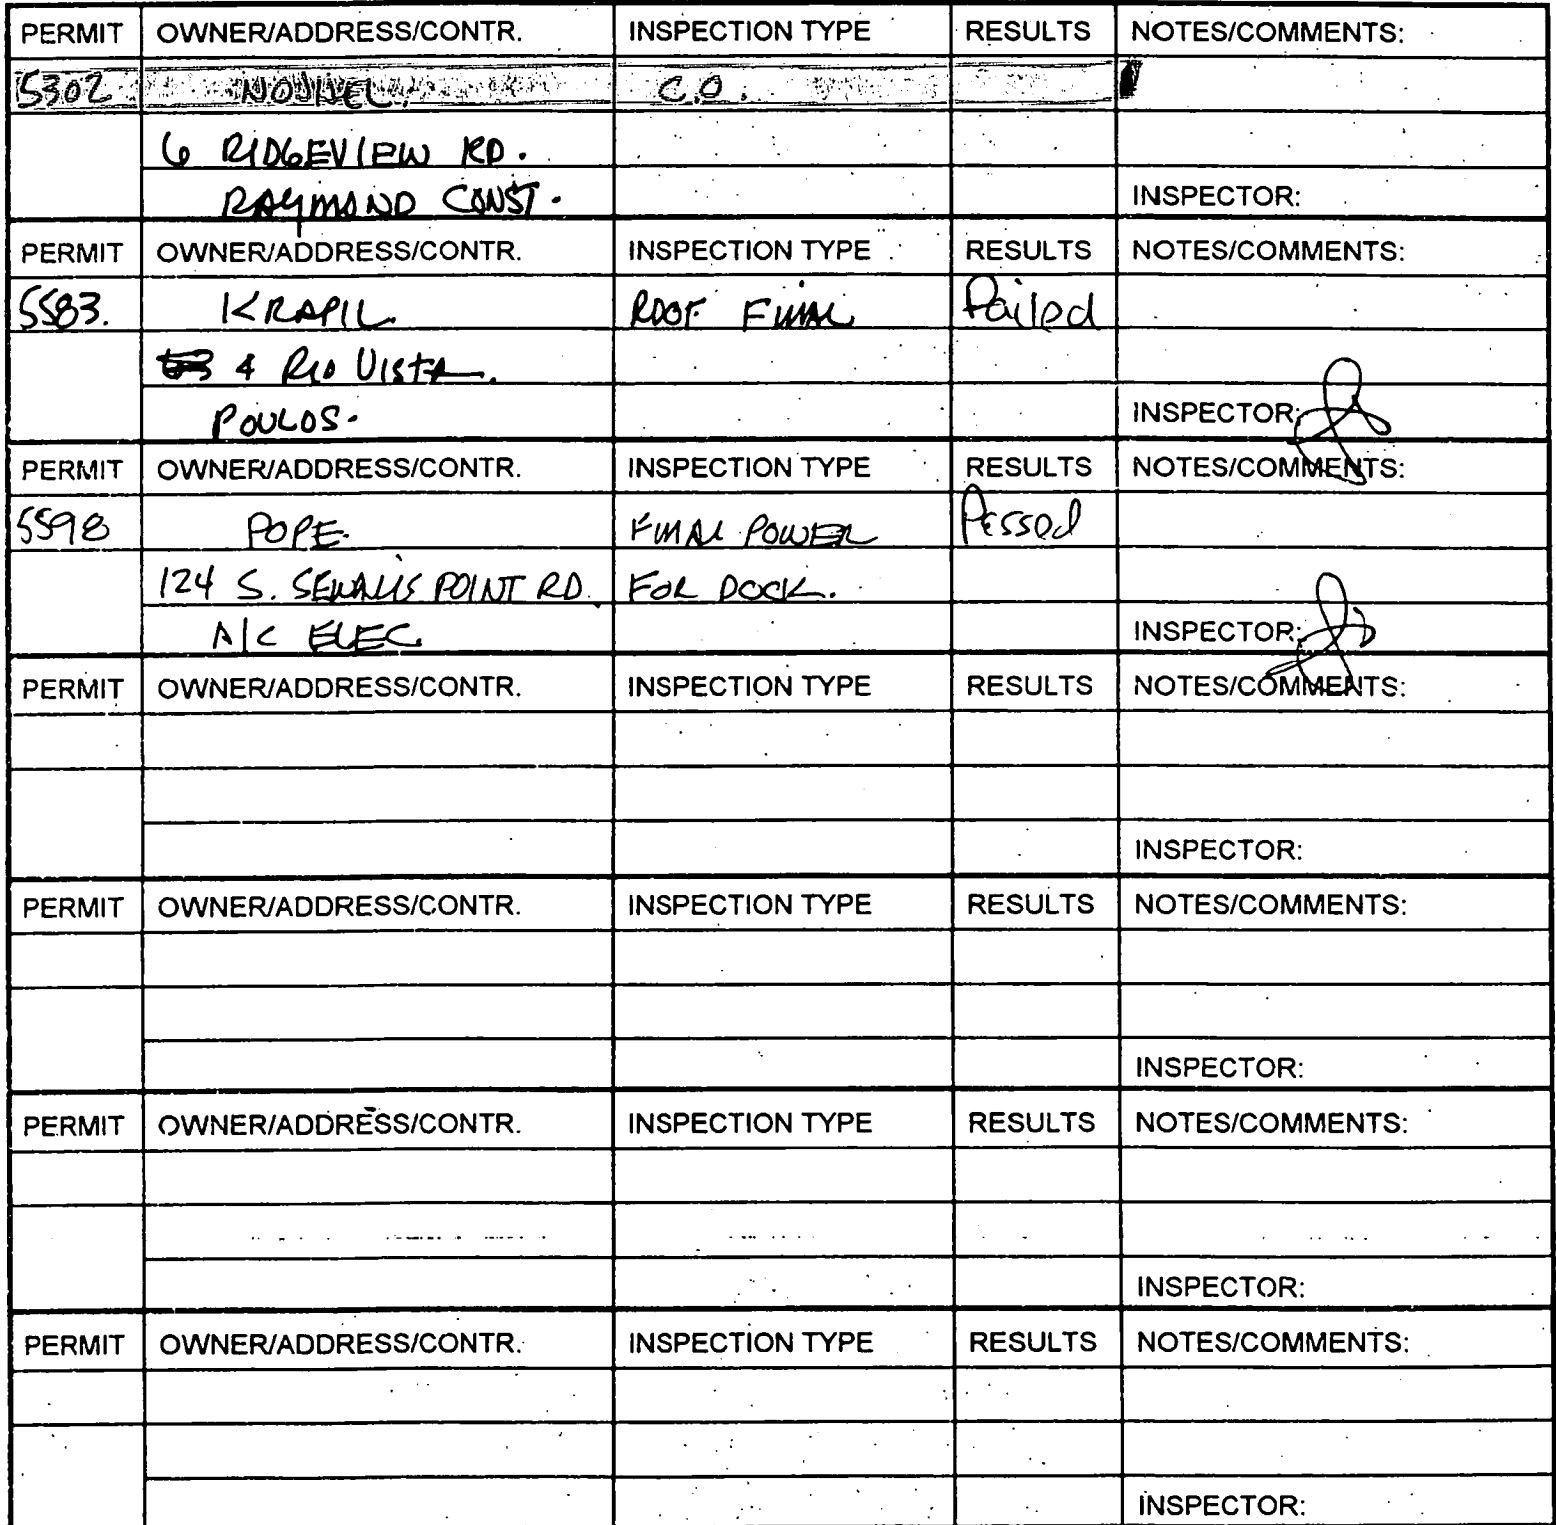 PERMIT OWNER/ADDRESS/CONTR. INSPECTION TYPE RESULTS NOTES/COMMENTS:
5302 C.O.
6 RIDGEVIEW RD.
RAYMOND CONST. INSPECTOR:
PERMIT OWNER/ADDRESS/CONTR. INSPECTION TYPE RESULTS NOTES/COMMENTS:
5583. KRAPIL ROOF FINAL Failed
4 RIO VISTA.
POULOS. INSPECTOR:
PERMIT OWNER/ADDRESS/CONTR. INSPECTION TYPE RESULTS NOTES/COMMENTS:
5598 POPE FINAL POWER Passed
124 S. SEWALLS POINT RD. FOR DOCK.
A/C ELEC. INSPECTOR:
PERMIT OWNER/ADDRESS/CONTR. INSPECTION TYPE RESULTS NOTES/COMMENTS:
INSPECTOR:
PERMIT OWNER/ADDRESS/CONTR. INSPECTION TYPE RESULTS NOTES/COMMENTS:
INSPECTOR:
PERMIT OWNER/ADDRESS/CONTR. INSPECTION TYPE RESULTS NOTES/COMMENTS:
INSPECTOR:
PERMIT OWNER/ADDRESS/CONTR. INSPECTION TYPE RESULTS NOTES/COMMENTS:
INSPECTOR: